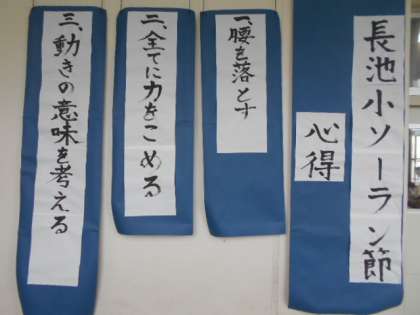 長池小ソーラン節
心得
一、腰を落とす
二、全てに力をこめる
三、動きの意味を考える